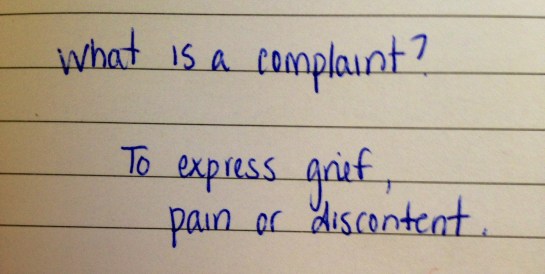 What is a complaint?
To express grief,
pain or discontent.